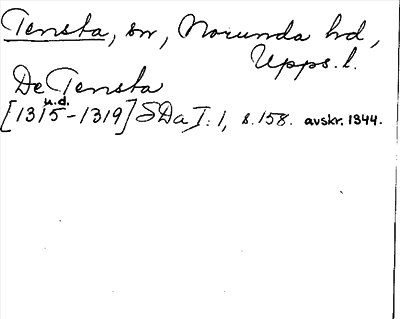 Tensta, sn, Norunda hd,
Upps. l.
De Tensta
u.d.
[1315-1319] SDa I:1, s.158. avskr. 1344.